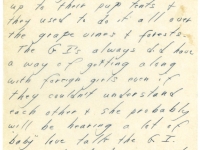 up to their pup tents &
they used to do it all over
the grape vines & forests.
The G.I's always did have
a way of getting along
with foreign girls even if
they couldn't understand
each other & she probably
will be hearing a lot of
baby love talk the G.I.